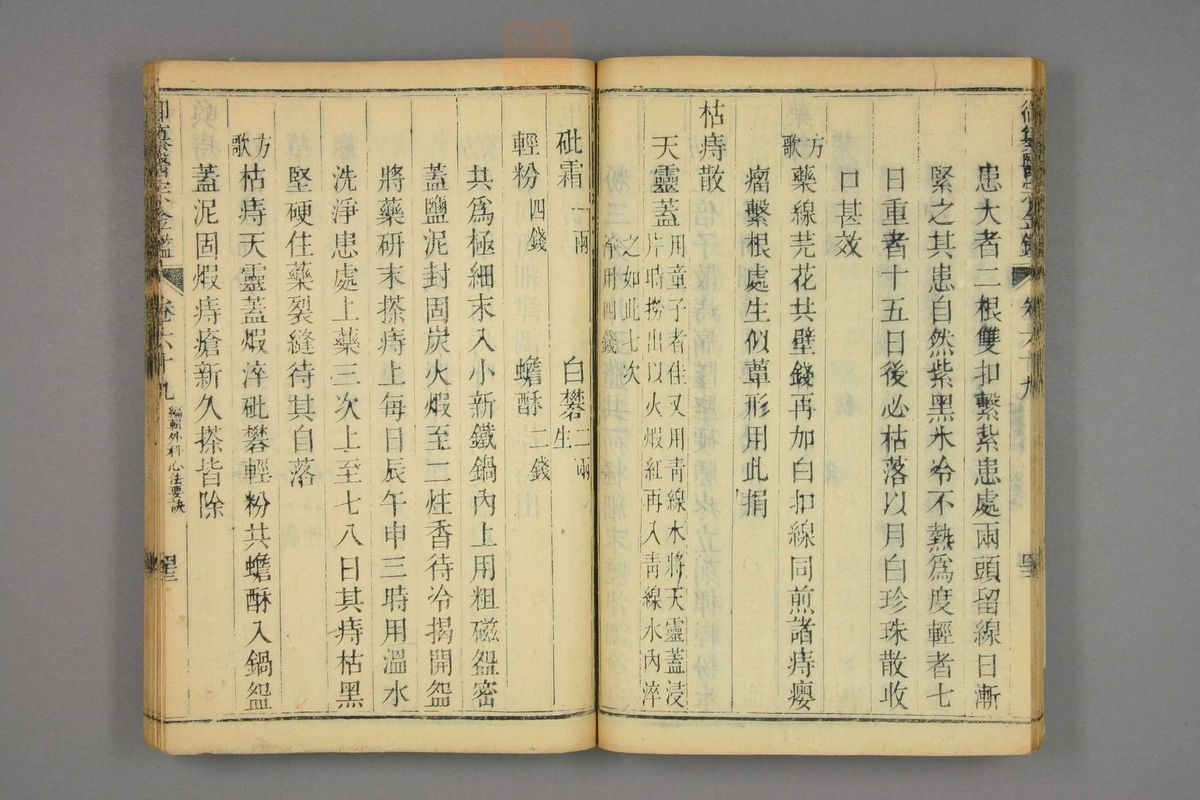 患大者二根雙扣繫紮患處兩頭留線日漸
緊之其患自然紫黑氷冷不熱爲度輕者七
日重者十五日後必枯落以月白珍珠散收
口甚效
方歌
藥線芫花共壁錢再加白扣線同煎諸痔癭
瘤繫根處生似蕈形用此捐
枯痔散
天靈蓋用童子者佳又用靑線水將天靈蓋浸
片時撈出以火煅紅再入靑線水內淬
之如此七次
淨用四錢
砒霜一兩 白礬生二兩
輕粉四錢 蟾酥二錢
共爲極細末入小新鐵鍋內上用粗磁盌密
蓋鹽泥封固炭火煅至二炷香待冷揭開盌
將藥研末搽痔上每日辰午申三時用溫水
洗淨患處上藥三次上至七八日其痔枯黑
堅硬住藥裂縫待其自落
方歌
枯痔天靈蓋煅淬砒礬輕粉共蟾酥入鍋盌
蓋泥固煅痔瘡新久搽皆除
御纂醫宗金鑑 卷六十九 編輯外科心法要訣